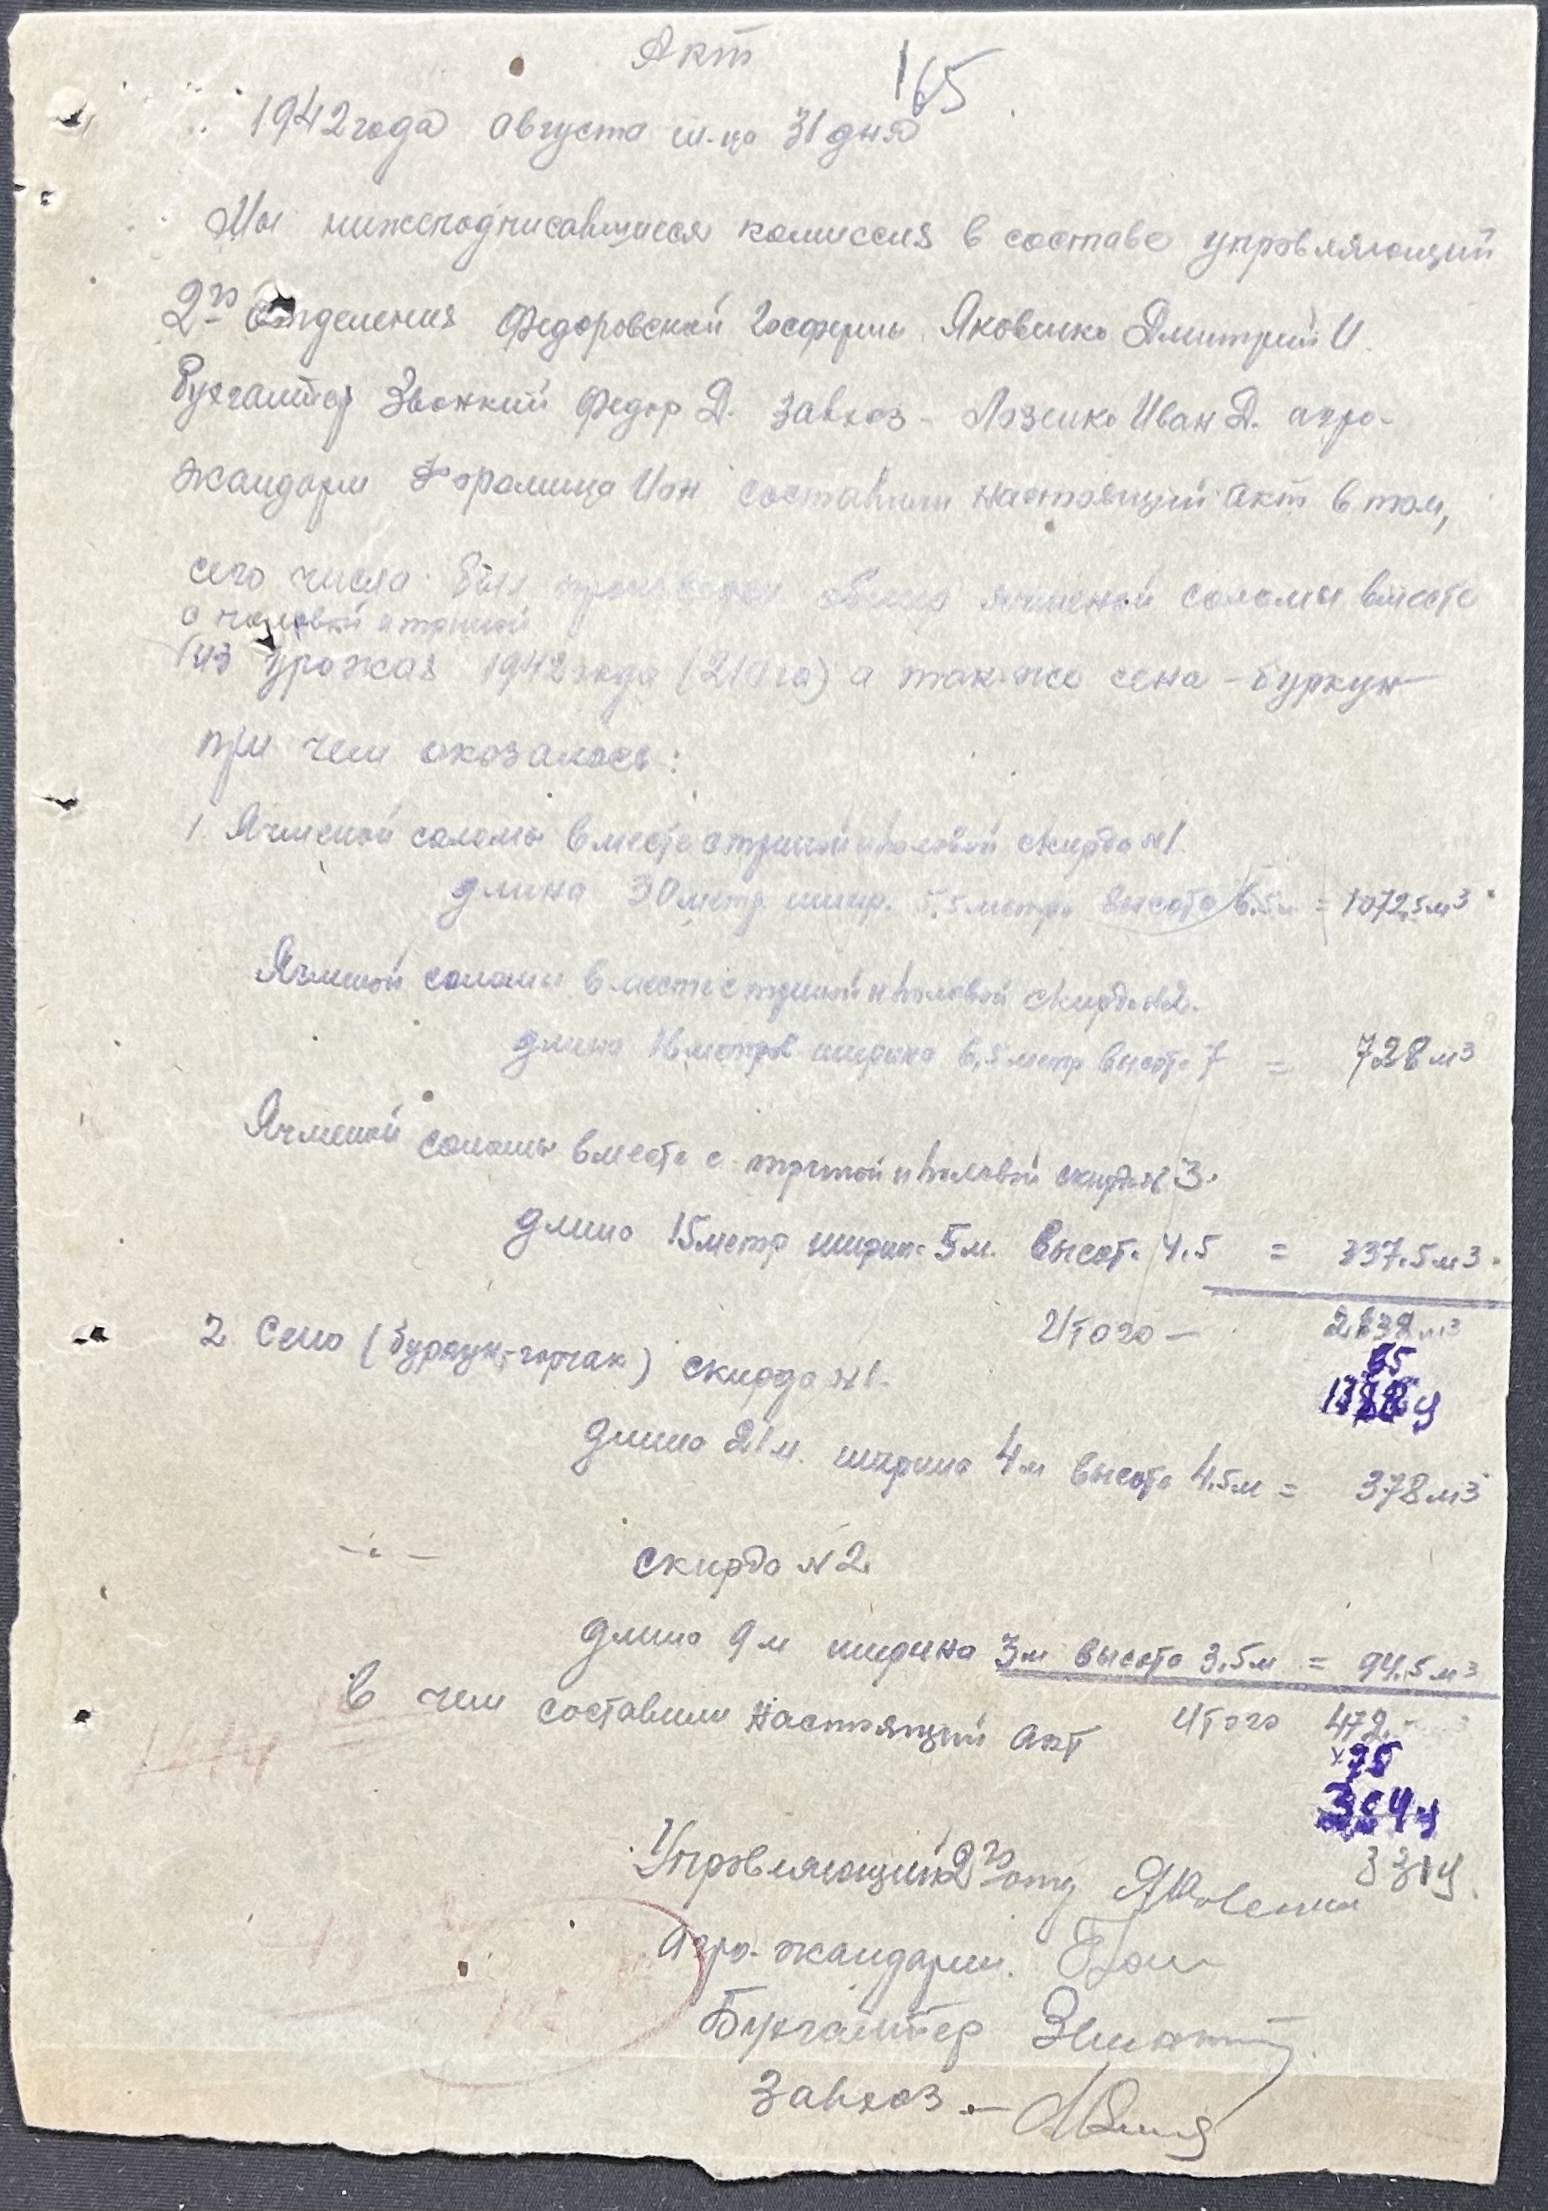 Акт
165
1942 года августа м-ца 31 дня
Мы нижеподписавшиеся комиссия в составе упровляющий
2го Отделения Федоровской Госфермы Яковенко Дмитрий И.
Бухгалтер Звонкий Федор Д. завхоз - Лозенко Иван Д. агро-
жандарм Ион составили настоящий акт в том,
сего числа был произведен обмер ячменой соломы вместе
с половой и триной
из урожая 1942 года (210 га) а так-же сена - буркун
при чем оказалось:
1. Ячменой соломы вместе с триной и половой скирда №1.
длина 30 метр. шир. 5,5 метра высота 6.5м = 1072,5 м3
Ячменой соломы вместе с триной и половой скирда №2.
длина 16 метров ширина 6,5 метр высота 7 = 728 м3
Ячменой соломы вместе с триной и половой скирда № 3.
длина 15 метр ширин. 5 м. высот. 4.5 = 337.5 м3.
Итого - 2138 м3
65
2 Сено (буркун-горчак) скирда №1.
длина 21 м. ширина 4 м высота 4.5 м = 378 м3
-"- скирда № 2
длина 9 м ширина 3 м высота 3.5 м = 94.5 м3
в чем составили настоящий акт Итого 472.
×75
331 ц.
Упровляющий 2го отд Яковенко
Агро-жандарм.
Бухгалтер
Завхоз -